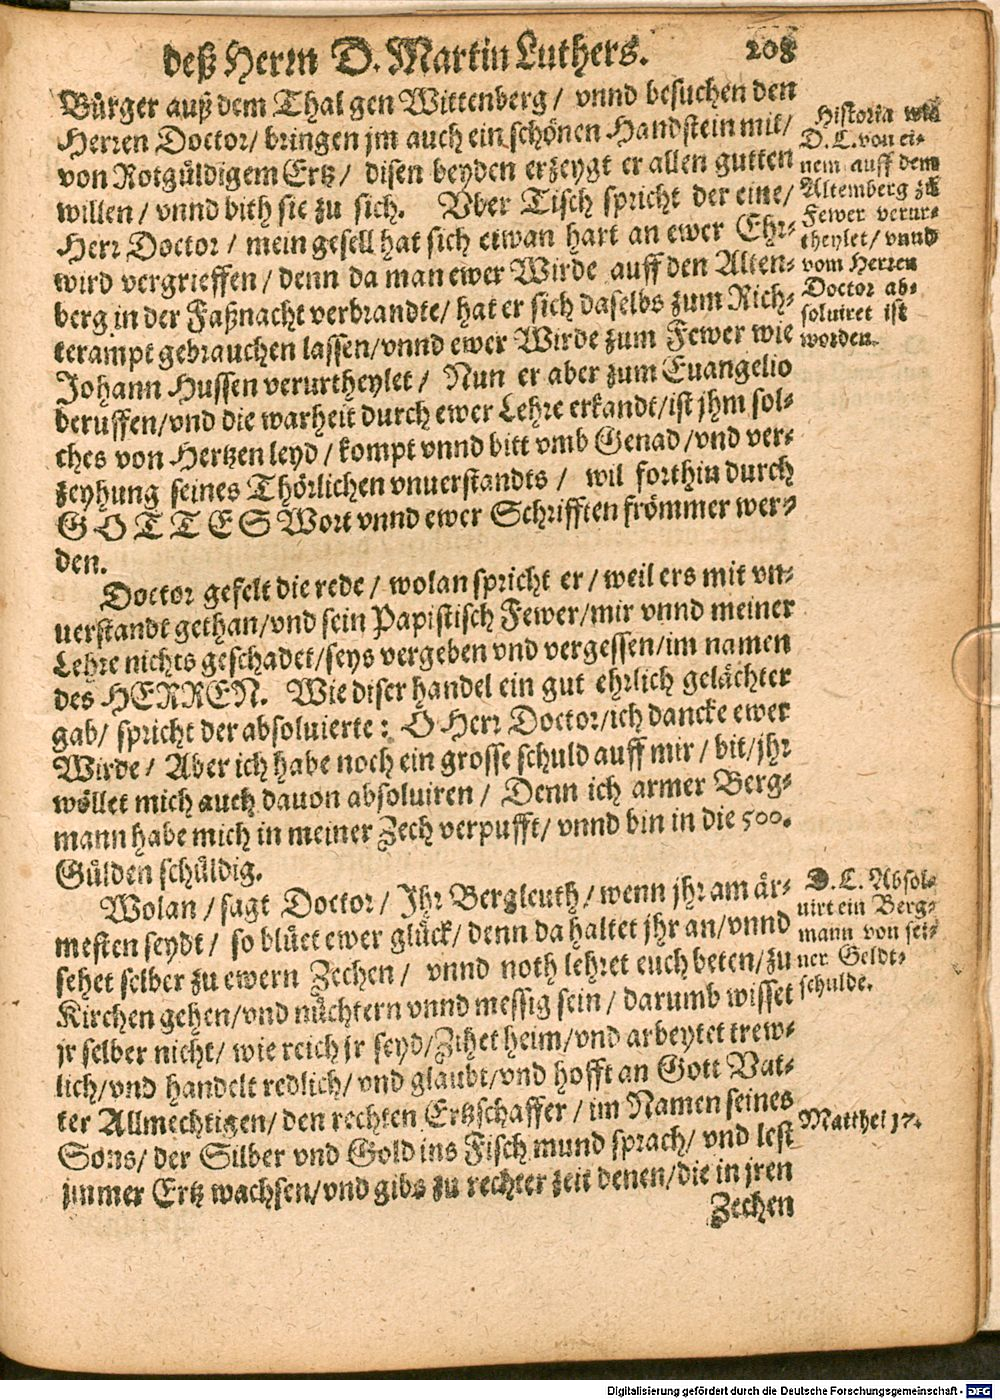 deß Herrn D. Martin Luthers. 208
Bürger auß dem Thal gen Wittenberg / vnnd besuchen den
Herren Doctor / bringen jm auch ein schönen Handstein mit /
von Rotgüldigem Ertz / disen beyden erzeygt er allen gutten
willen / vnnd bith sie zu sich. Vber Tisch spricht der eine /
Herr Doctor / mein gesell hat sich etwan hart an ewer Ehr-
wird vergrieffen / denn da man ewer Wirde auff den Alten-
berg in der Faßnacht verbrandte / hat er sich daselbs zum Rich-
terampt gebrauchen lassen / vnnd ewer Wirde zum Fewer wie
Johann Hussen verurtheylet / Nun er aber zum Euangelio
beruffen / vnd die warheit durch ewer Lehre erkandt / ist jhm sol-
ches von Hertzen leyd / kompt vnnd bitt vmb Genad / vnd ver-
zeyhung seines Thörlichen vnuerstandts / wil forthin durch
GOTTES Wort vnnd ewer Schrifften frömmer wer-
den.
Historia wie
D. L. von ei-
nem auff dem
Altemberg zů
Fewer verur-
theylet / vnnd
vom Herren
Doctor ab-
soluiret ist
worden.
Doctor gefelt die rede / wolan spricht er / weil ers mit vn-
uerstandt gethan / vnd sein Papistisch Fewer / mir vnnd meiner
Lehre nichts geschadet / seys vergeben vnd vergessen / im namen
des HERREN. Wie diser handel ein gut ehrlich gelächter
gab / spricht der absoluierte: O Herr Doctor / ich dancke ewer
Wirde / Aber ich habe noch ein grosse schuld auff mir / bit / jhr
wöllet mich auch dauon absoluiren / Denn ich armer Berg-
mann habe mich in meiner Zech verpufft / vnnd bin in die 500.
Gülden schüldig.
Wolan / sagt Doctor / Jhr Bergleuth / wenn jhr am är-
mesten seydt / so blüet ewer glück / denn da haltet jhr an / vnnd
sehet selber zu ewern Zechen / vnnd noth lehret euch beten / zu
Kirchen gehen / vnd nüchtern vnnd messig sein / darumb wisset
jr selber nicht / wie reich jr seyd / Zihet heim / vnd arbeytet trew-
lich / vnd handelt redlich / vnd glaubt / vnd hofft an Gott Vat-
ter Allmechtigen / den rechten Ertzschaffer / im Namen seines
Sons / der Silber vnd Gold ins Fisch mund sprach / vnd lest
jmmer Ertz wachsen / vnd gibs zu rechter zeit denen / die in jren
Zechen
D. L. Absol-
uirt ein Berg-
mann von sei-
ner Geldt-
schulde.
Matthei 17.
Digitalisierung gefördert durch die Deutsche Forschungsgemeinschaft - DFG